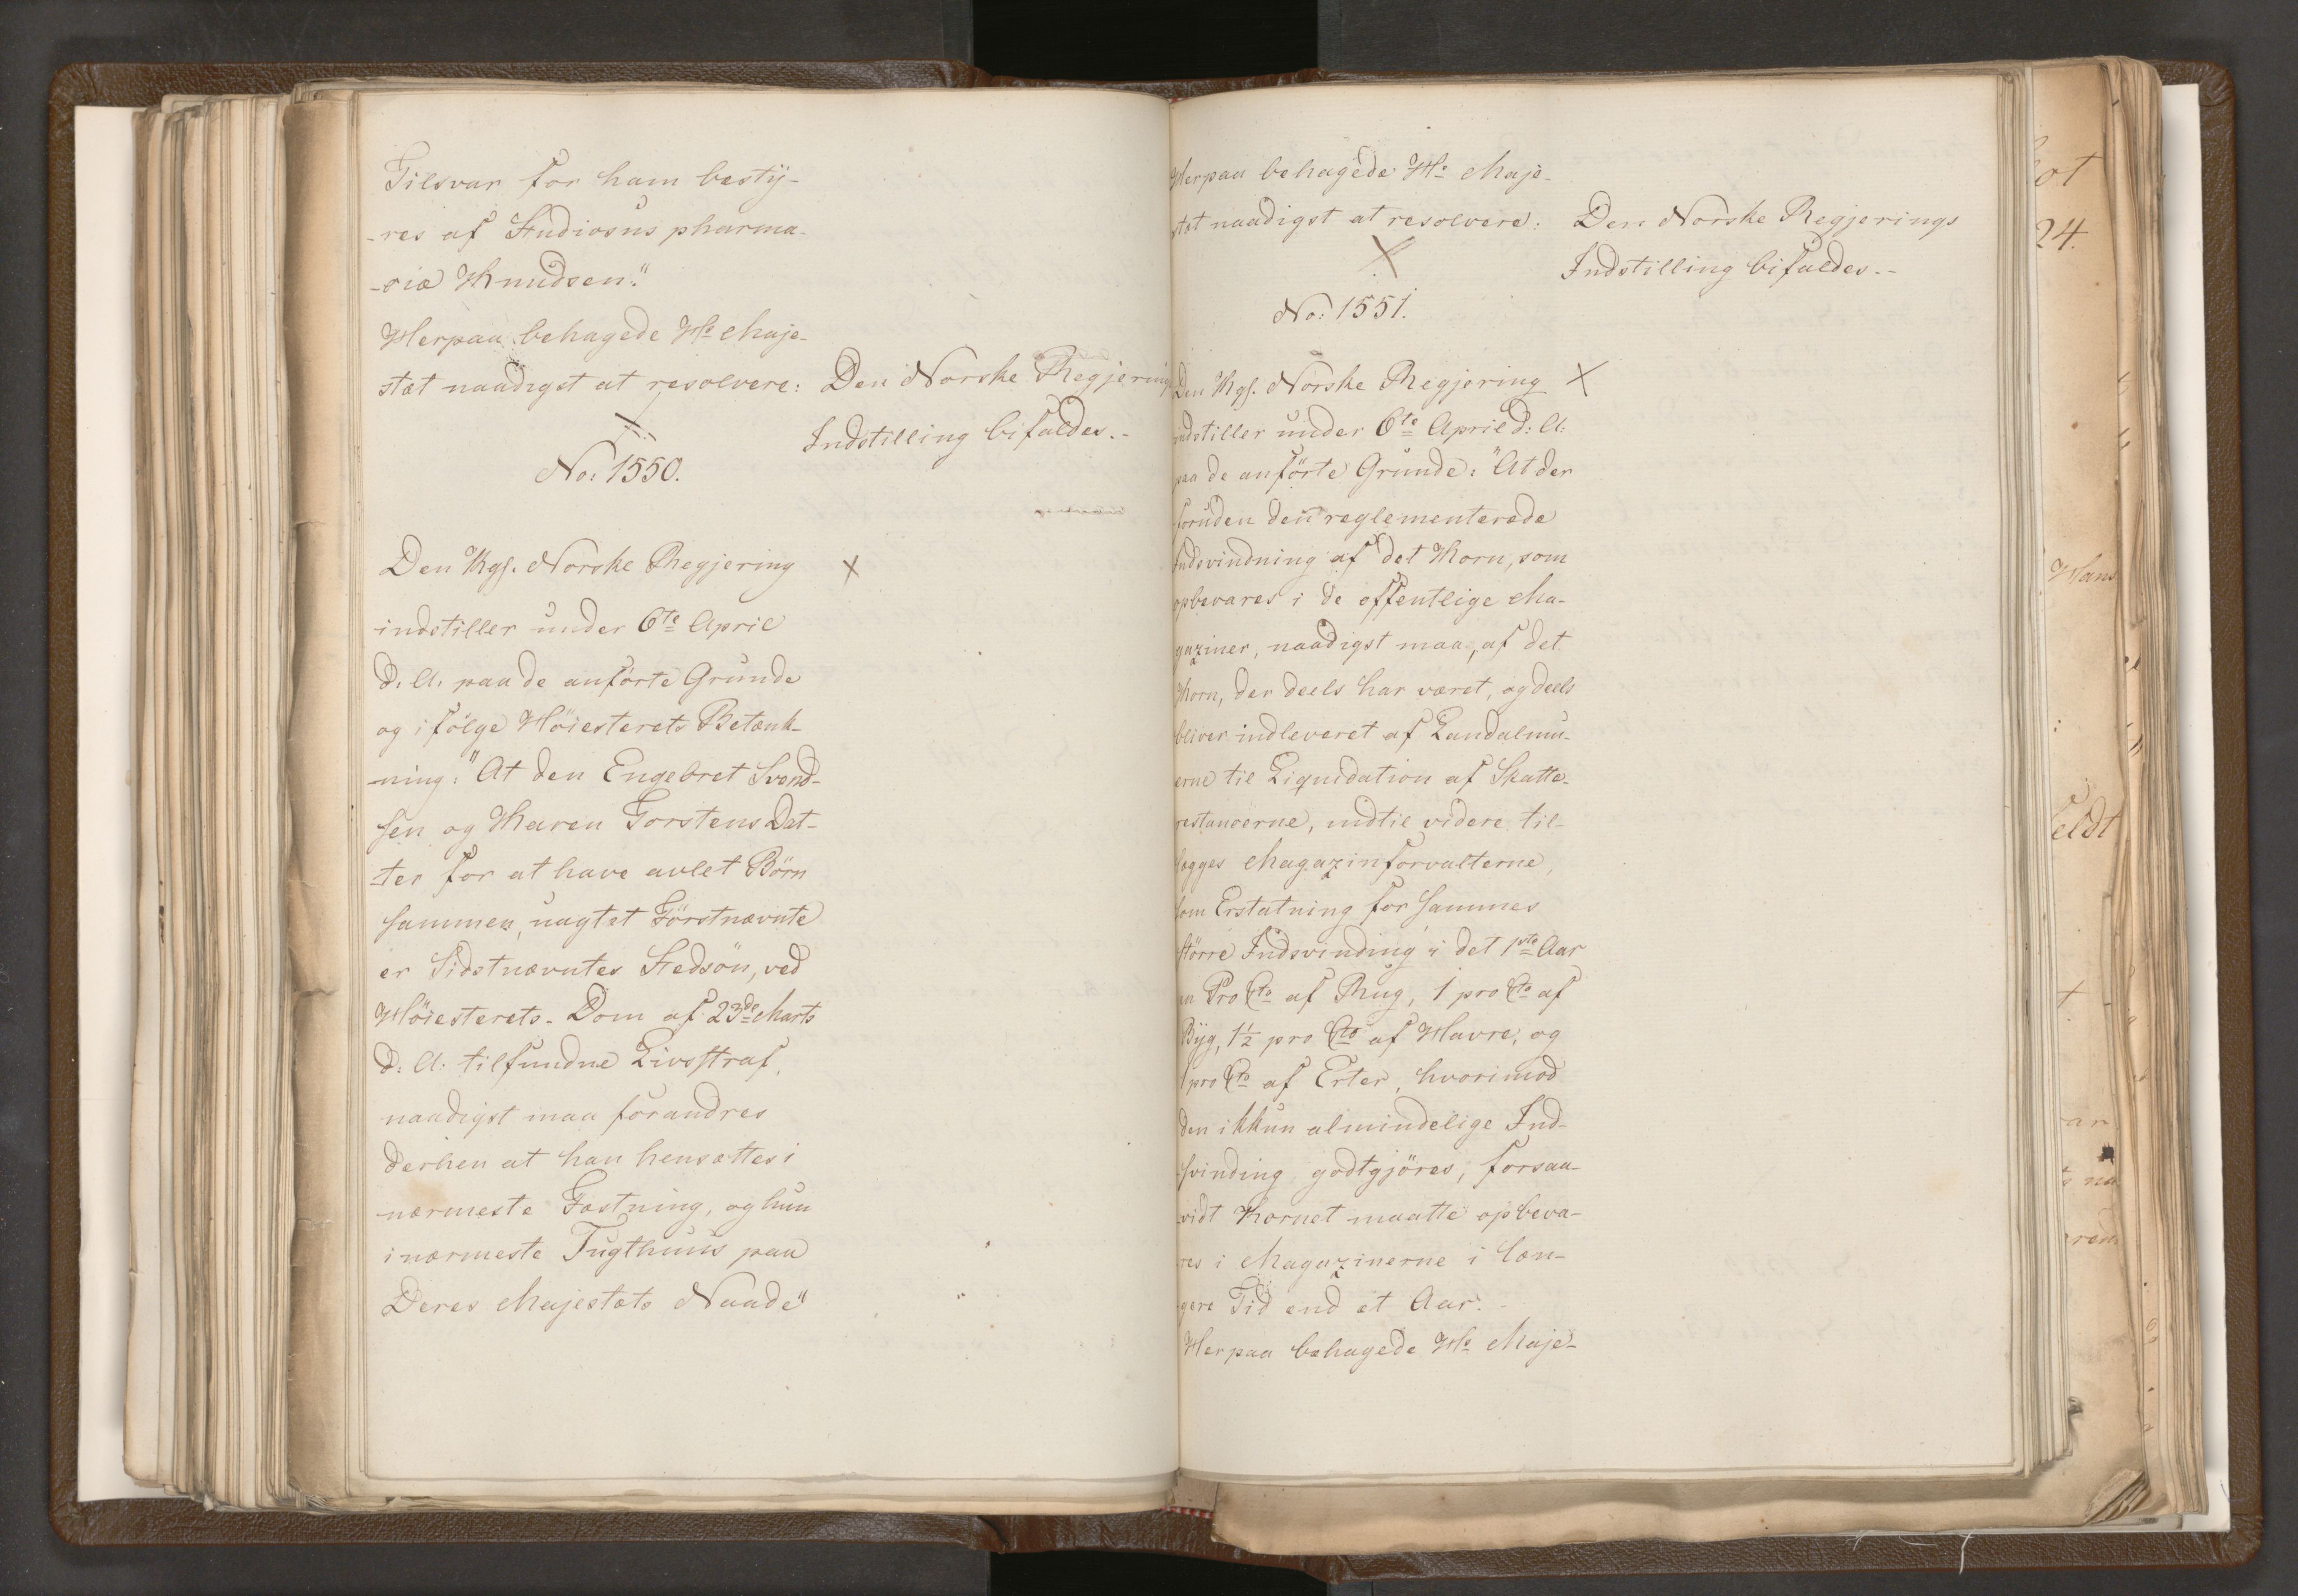 Tilsvar for ham besty-
-res af Studiosus pharma-
-ciæ Knudsen."
Herpaa behagede Hs Maje-
stæt naadigst at resolvere:
Den Norske Regjerings
Indstilling bifaldes.-
No: 1550.
Den Kgl. Norske Regjering
indstiller under 6te April
d: A: paa de anförte Grunde
og ifölge Höiesterets Betænk-
-ning: "At den Engebret Svend-
sen og Karen Torstens Dat-
-ter for at have avlet Börn
sammen, uagtet Förstnævnte
er Sidstnævntes Stedsön, ved
Höiesterets-Dom af 23de Marts
d: A: tilfundne Livsstraf,
naadigst maa forandres
derhen at han hensættes i
nærmeste Fæstning, og hun
i nærmeste Tugthuus paa
Deres Majestæts Naade"
Herpaa behagede Hs Maje-
stæt naadigst at resolvere:
Den Norske Regjerings
Indstilling bifaldes.-
No: 1551.
Den Kgl. Norske Regjering
indstiller under 6te April d: A:
paa de anförte Grunde: "At der
foruden den reglementerede
Indsvindning af det Korn, som
opbevares i de offentlige Ma-
gaziner, naadigst maa, af det
Korn, der deels har været, og deels
bliver indleveret af Landalmu-
erne til Liqvidation af Skatte-
restancerne, indtil videre til-
lægges Magazinforvalterne,
som Erstatning for sammes
större Indsvinding i det 1ste Aar
en Pro Cto af Rug, 1 pro Cto af
Byg, 1½ pro Cto af Havre, og
1 pro Cto af Erter, hvorimod
den ikkun almindelige Ind-
svinding godtgjöres, forsaa-
vidt Kornet maatte opbeva-
res i Magazinerne i læn-
gere Tid end et Aar.-
Herpaa behagede Hs Maje-
24.
Hans